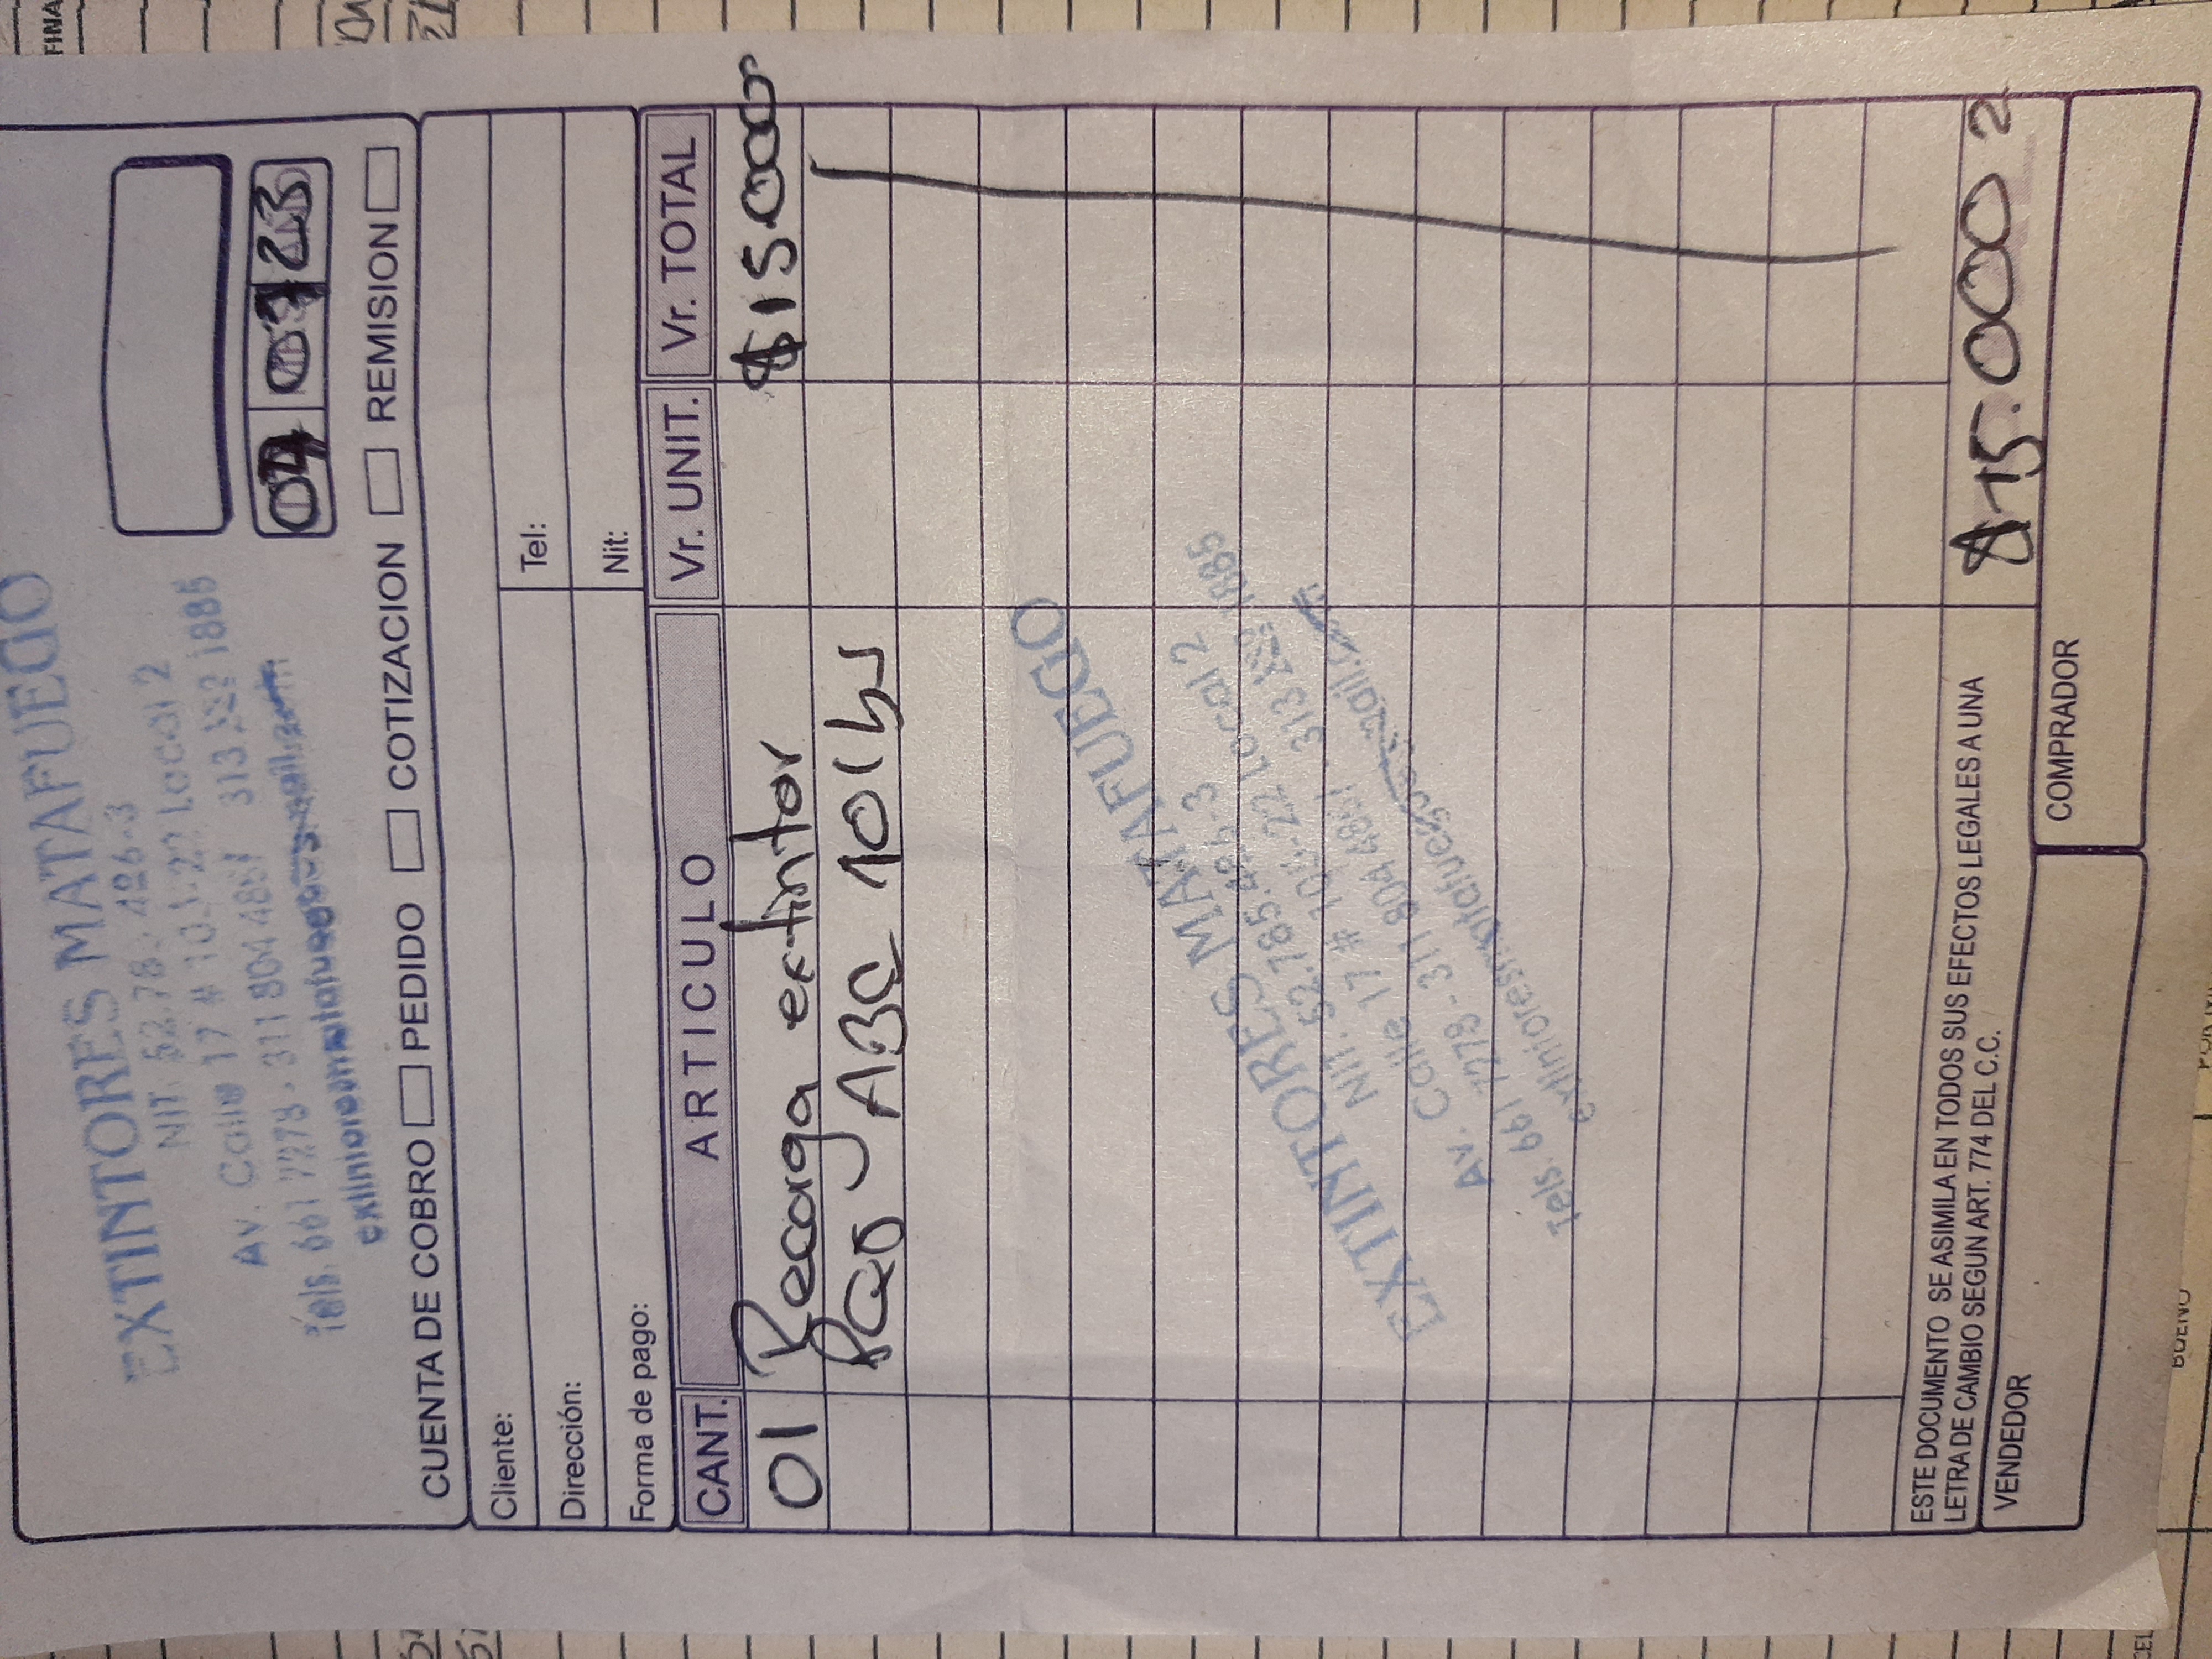 EXTINTORES MATAFUEGO
NIT. 52.785.426-3
Av. Calle 17 # 105-22 Local 2
Tels. 661 7278 - 311 804 4851 - 313 1885
07 23
CUENTA DE COBRO PEDIDO COTIZACION REMISION
Cliente:
Dirección: Tel:
Forma de pago: Nit:
CANT. ARTICULO Vr. UNIT. Vr. TOTAL
01 Recarga extintor $15000
PQS ABC 10 lbs
EXTINTORES MATAFUEGO
NIT. 52.785.426-3
Av. Calle 17 # 105-22 Local 2
Tels. 661 7278 - 311 804 4851 - 313 1885
ESTE DOCUMENTO SE ASIMILA EN TODOS SUS EFECTOS LEGALES A UNA
LETRA DE CAMBIO SEGUN ART. 774 DEL C.C.
$15.000
VENDEDOR COMPRADOR